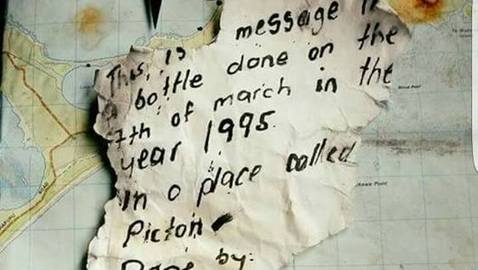 This, is a message i
a bottle done on the
7th of march in the
year 1995
in a place called
Picton
Done by: